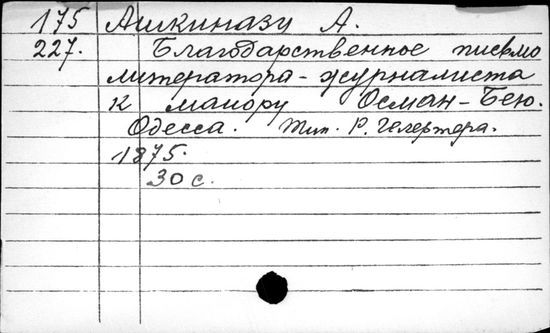 175 Ашкиназу А.
227. Благодарственное письмо
литератора-журналиста
к майору Осман-Бею.
Одесса. Тип. Р. Гелертера.
1875.
30 с.